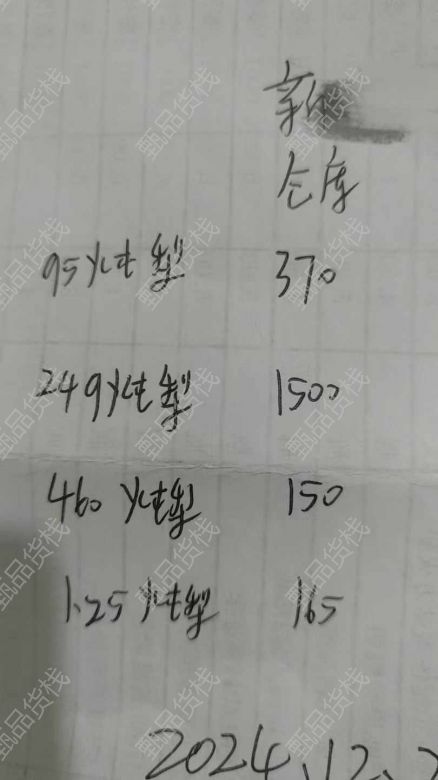 新
仓库
95炖梨 370
249炖梨 1500
460炖梨 150
1.25炖梨 165
2024.12.
甄品货栈